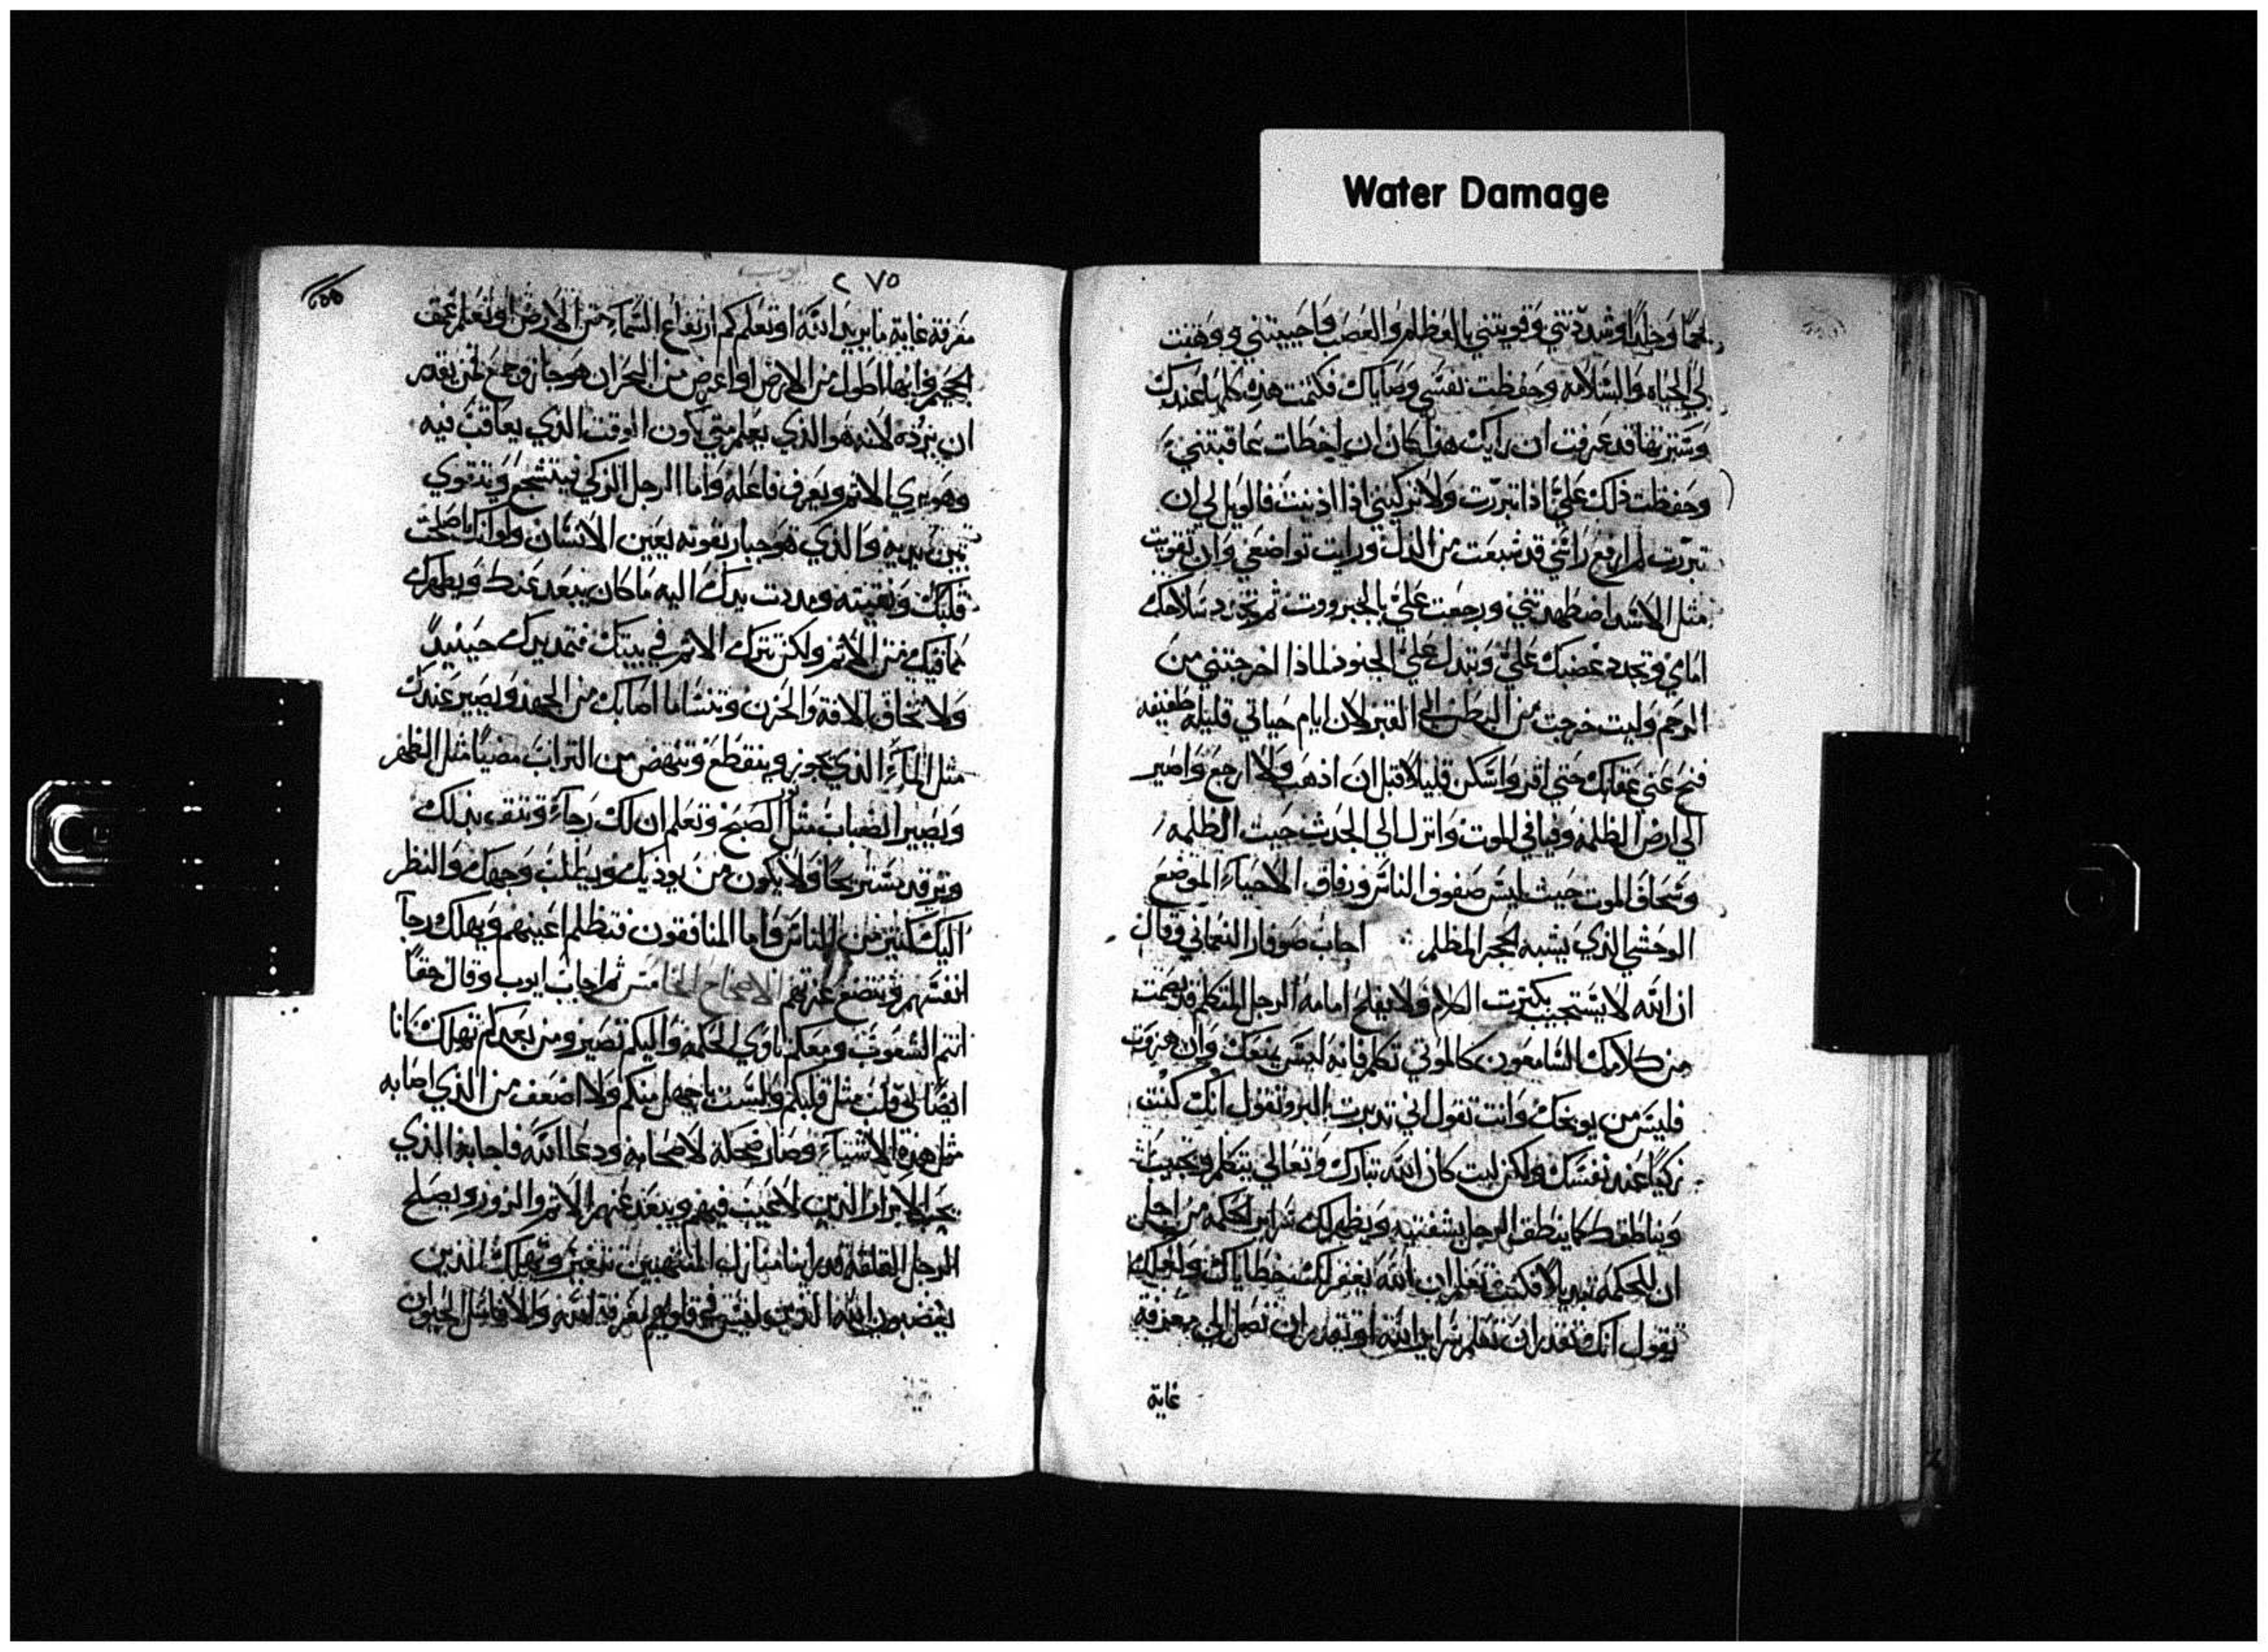 Water Damage
لحمًا وجلدًا وشددتني وقويتني بالعظام والعصب فاحييتني ووهبت
لي الحياه والسلامه وحفظت نفسي وصاياك فكتمت هذه كلها عندك
وسترتها قد عرفت ان رايك هذا كان ان اخطات عاقبتني
وحفظت ذلك علي اذا تبررت ولا تزكيني اذا اذنبت فالويل لي ان
تبررت لم ارفع راسي قد شبعت من الذل ورايت تواضعي وان تقويت
مثل الاسد اضطهدتني ورجعت علي بالجبرووت ثم تجرد سلاحك
امامي وتجدد غضبك علي وتبدل علي الجنود لماذا اخرجتني من
الرحم وليت خرجت من البطن الي القبر لان ايام حياتي قليله طفيفه
فنح عني عقابك حتي اقر واسكن قليلا قبل ان اذهب ولا ارجع واصير
الي ارض الظلمه وفيافي الموت وانزل الي الجدث حيث الظلمه
الموت حيث ليس صفوف الناس ورفاق الاحياء الموضع
الوحشي الذي يشبه الحجر المظلم اجاب صوفار النعماني وقال
ان الله لا يستجيب بكثرت الكلام ولا يفلح امامه الرجل المتكلم قد يصمت
من كلامك السامعون كالموتي تكلم فانه ليس يمنعك وان هزوت
فليس من يوبخك وانت تقول اني تدبرت البر وتقول انك كنت
زكيًا عند نفسك ولكن ليت كان الله تبارك وتعالي يتكلم ويجيب
ويناطقك كما ينطق الرجل بشفتيه ويظهر لك سراير الحكمه من اجل
ان للحكمه فكنت تعلم ان الله يغفر لك خطاياك ولعلك
تقول انك تقدر ان تعلم سراير الله او تقدر ان تصل الي معرفة
غاية
ايوب
٢٧٥
معرفة غاية ما يريد الله او تعلم كم ارتفاع السماء من الارض او تعلم عمق
الجحيم وانها اطول من الارض او اعرض من البحر ان هو جاز وجمع فمن يقدر
ان يرده لانه هو الذي يعلم متي يكون الوقت الذي يعاقب فيه
وهو يري الاثم ويعرف فاعله واما الرجل الزكي فيتشجع ويتقوي
بين يديه والذي هو جبار بقوته يعين الانسان ولو انك اصلحت
قلبك ونقيته ومددت يدك اليه ما كان يبعد عنك ويطهرك
من الاثم ولكن تترك الاثم في بيتك فتمد يدك حينيدً
ولا تخاف الافة والحزن وتنسا ما اصابك من الجهد ويصير عندك
مثل الماء الذي يجوز وينقطع وتنهض من التراب مضيًا مثل الظهر
ويصير الضباب مثل الصبح وتعلم ان لك رجاء وتثق بذلك
وترقد مستريحًا ولا يكون من يوذيك ويطلب وجهك والنظر
اليك كثير من الناس واما المنافقون فتظلم اعينهم ويهلك رجآ
انفسهم الاصحاح الخامس ثم اجاب ايوب وقال حقًا
انتم الشعوب ومعكم تاوي الحكمه واليكم تصير ومن بعدكم تهلك انا
ايضًا لي قلب مثل قلبكم ولست باجهل منكم ولا اضعف من الذي اصابه
مثل هذه الاشياء وصار ضحكه لاصحابه ودعا الله فاجابه الذي
يحب الابرار الذين لا عيب فيهم ويبعد عنهم الاثم والزور ويصلح
الرجل القلقه قد راينا منازل المنتهبين تتغير وتهلك الذين
يغضبون الله الذين ليس في قلوبهم معرفة الله والا فاسل الحيوان